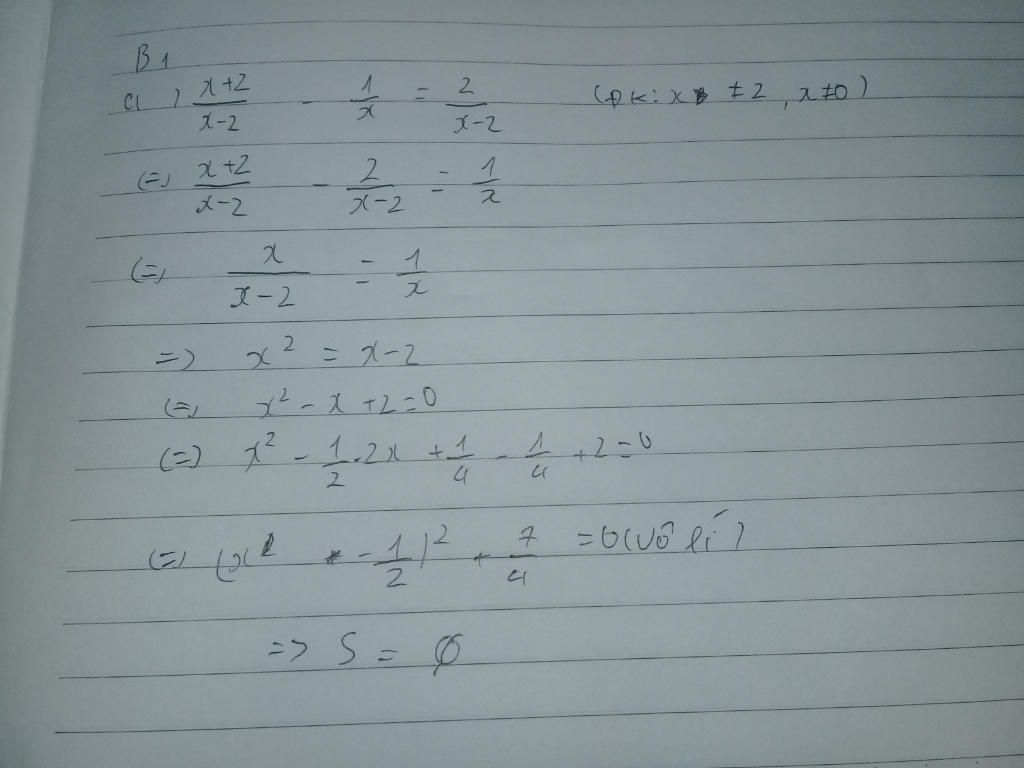 B1
a) \frac{x+2}{x-2} - \frac{1}{x} = \frac{2}{x-2} (ĐK: x ≠ 2, x ≠ 0)
(=) \frac{x+2}{x-2} - \frac{2}{x-2} = \frac{1}{x}
(=) \frac{x}{x-2} = \frac{1}{x}
=> x² = x-2
(=) x² - x + 2 = 0
(=) x² - \frac{1}{2}.2x + \frac{1}{4} - \frac{1}{4} + 2 = 0
(=) (x - \frac{1}{2})² + \frac{7}{4} = 0 (vô lí)
=> S = ∅